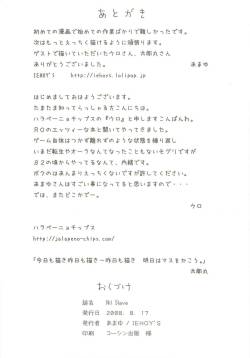 あとがき
初めての漫画で始めての作業ばかりで難しかったです。
次はもっとえっちく描けるように頑張ります。
ゲストで描いていただいたウロさん、太郎丸さん
ありがとうございました。 あまゆ
IENOY'S http://ienoys.lolipop.jp
はじめましておはようございます。
たまたま知ってらっしゃる方こんにちは。
ハラペーニョキップスの『ウロ』と申しますこんばんわ。
只今のエッツィーな本と聞いてやってきました。
ゲーム自体はつかず離れずのような状態を繰り返し
いまだ転生やオーラなんてなったこともないモグリですが
82の頃からやってるなんて、内緒です。
ボクのはあんまえっちくないですが許してください。
あまゆさんはすごい事になってると思いますので・・・
では、またどこかでー。
ウロ
ハラペーニョキップス
http://jalapeno-chips.com/
『今日も描き昨日も描き～昨日も描き 明日はマスをかこう。』
太郎丸
おくづけ
題名 Nil Slave
発行日 2008. 8. 17
発行者 あまゆ / IENOY'S
印刷 コーシン出版 様